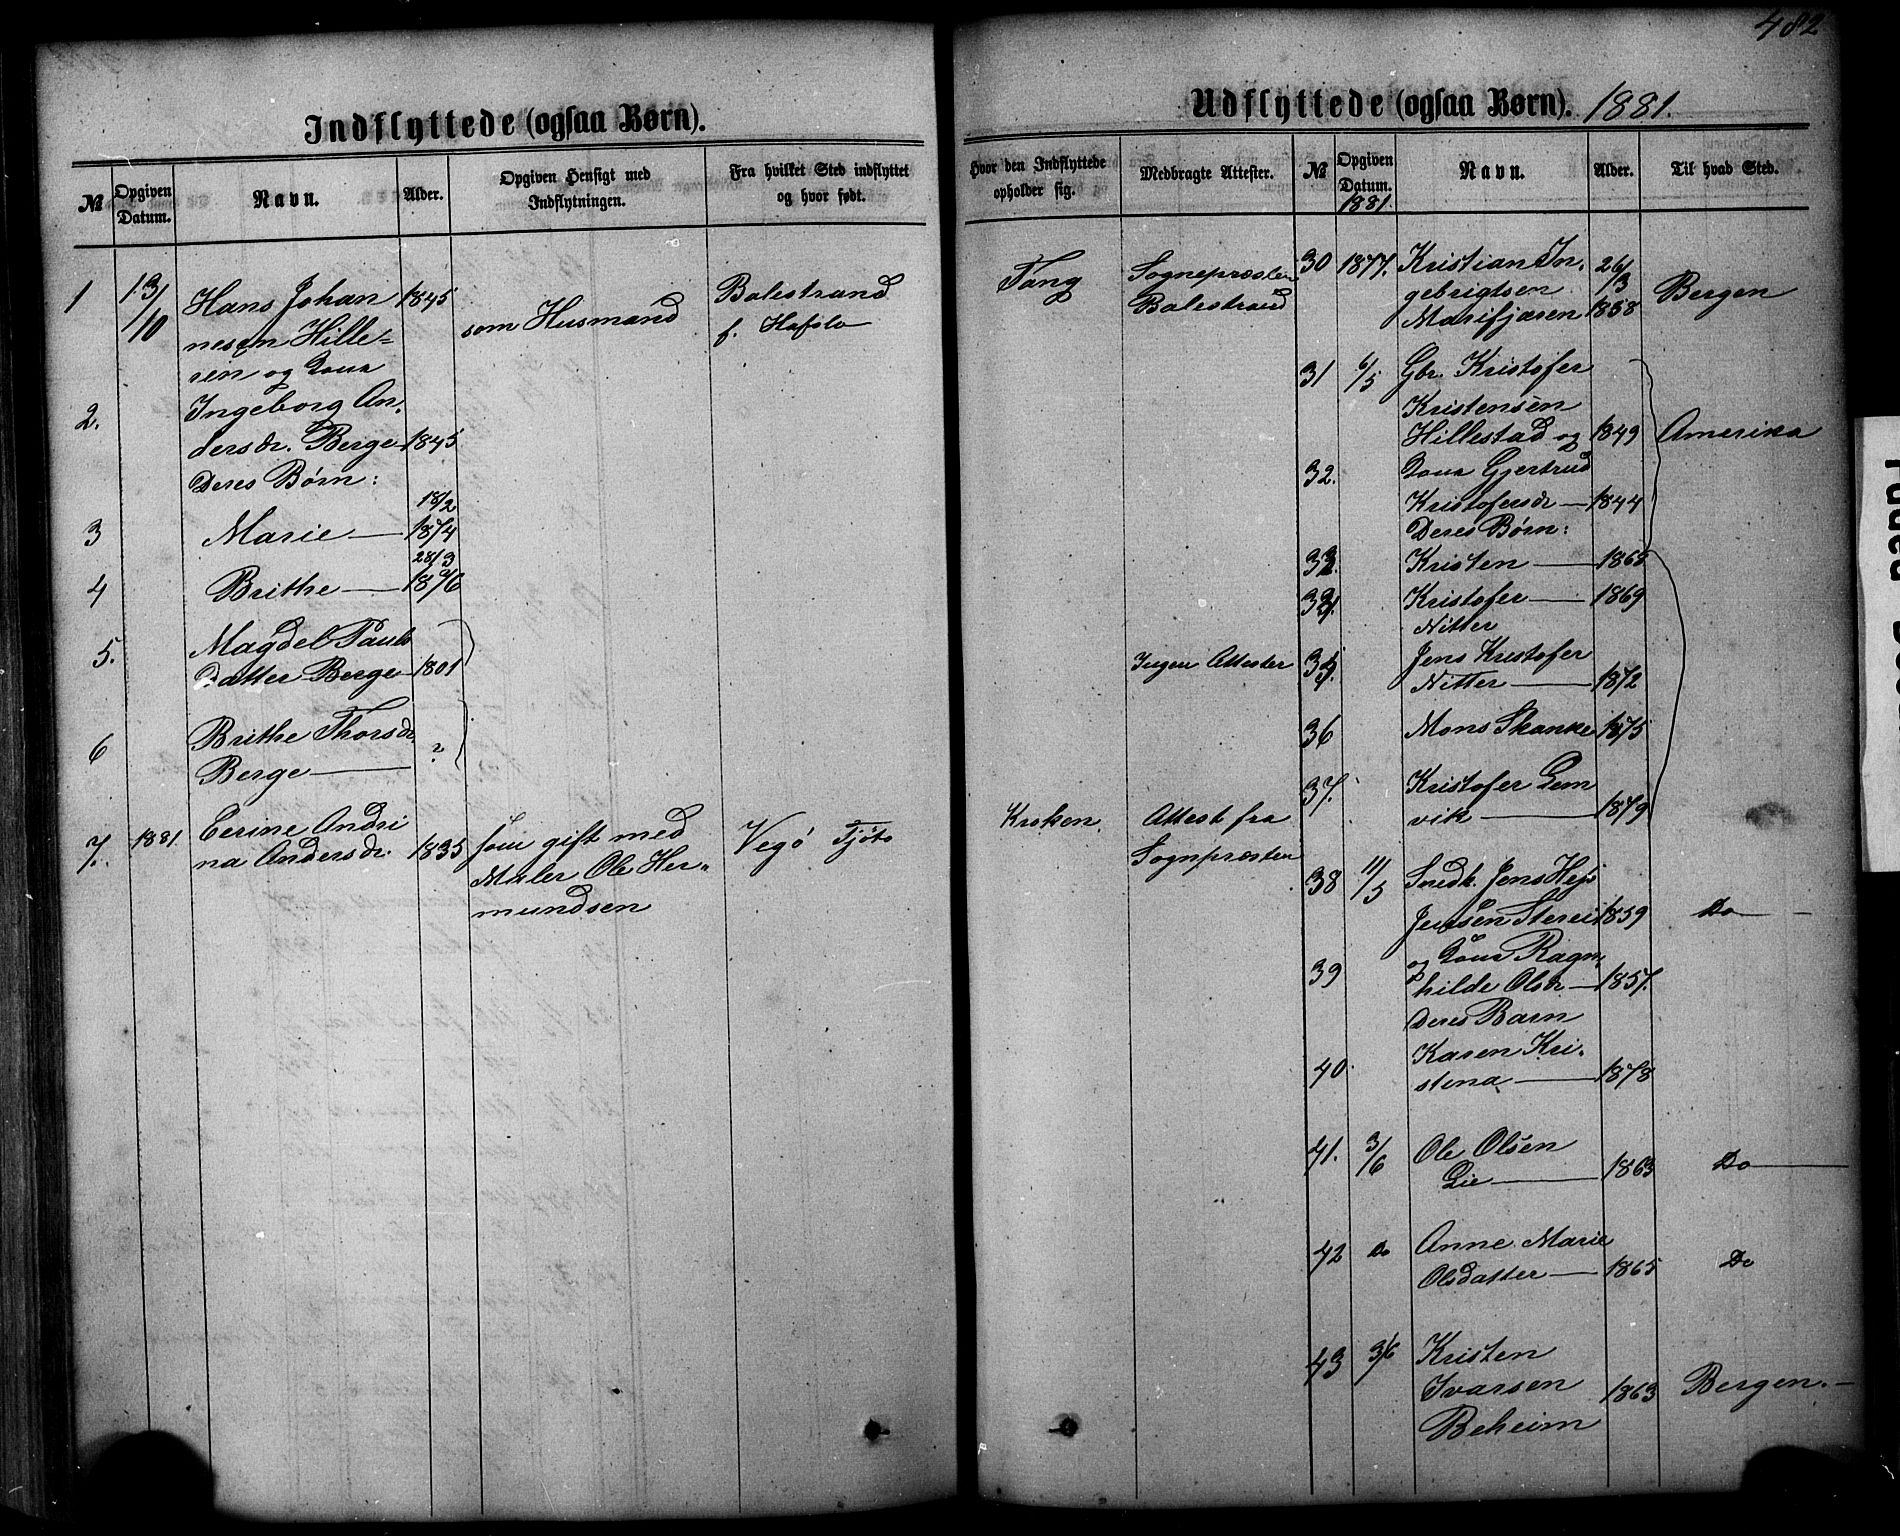 482
Indflyttede (ogsaa Børn).
№
Opgiven Datum.
Navn.
Alder.
Opgiven Hensigt med Indflytningen.
Fra hvilket Sted indflyttet og hvor født.
1 13/10 Hans Johan 1845 som Husmand Balestrand
nesen Hille= f. Hafslo
sen og Kona
2. Ingeborg An,
dersdr. Berge 1845
Deres Børn:
18/2
3 Marie — 1874
28/3
4 Brithe — 1876
5. Magdel Pauls
datter Berge 1801
6 Brithe Thorsdr. ?
Berge —
7. 1881 Andri 1835 som gift med Vegö Tjöto
na Andersdr. Maler Ole Her=
mundsen
Udflyttede (ogsaa Børn). 1881.
Hvor den Indflyttede opholder sig.
Medbragte Attester.
№
Opgiven Datum.
1881.
Navn.
Alder.
Til hvad Sted.
Tang Sognepræsten
Balestrand
Ingen Attester
Kroken. Attest fra
Sognpræsten
30 1877. Kristian In, 26/3
gebrigtsen Bergen
Marifjæren 1858
31 6/5 Gbr. Kristofer
Kristensen
Hillestad og 1849 Amerika
32. Kona Gjertrud
Kristofersdr — 1844
Deres Børn:
33. Kristen — 1868
34. Kristofer — 1869
Nitter
35 Jens Kristofer
Nitter — 1872
36 Mons Skanke 1875
37. Kristofer Lem
vik — 1879
38 11/5 Snedk. Jens
Jensen 1859 Do —
39 og Kona Ragn,
hilde Olsdr — 1857.
Deres Barn
40. Karen Kri,
stena — 1878
41. 3/6 Ole Olsen
Lie — 1863 Do —
42 Do Anne Marie
Olsdatter — 1865 Do
43 3/6 Kristen
Ivarsen 1863 Bergen. —
Beheim